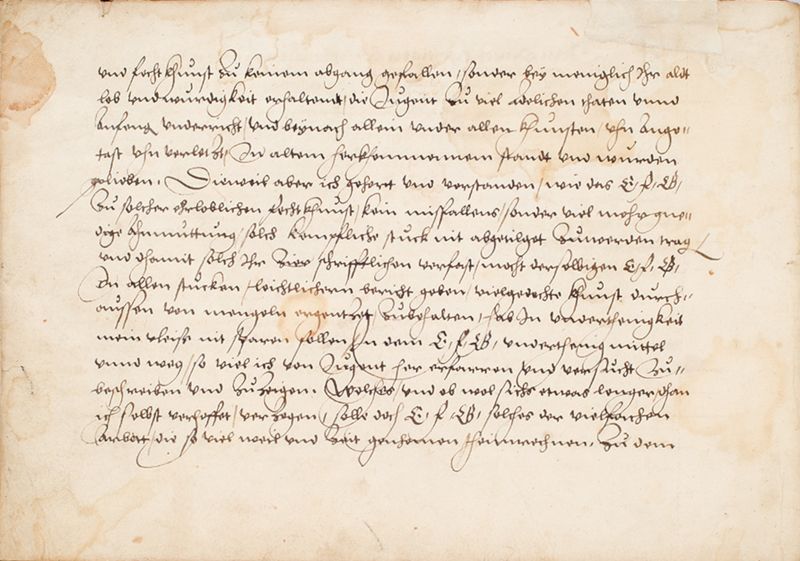 vnd fechtkhunst zu keinem abgang gefallen, sonder bey meniglich Ihr aldt
lob vnd wurdigkeit erhaltendt, die Jugent zu viel Adelichen thaten vnnd
Anfeng vnderricht, vnd beynach allein vnder allen khunsten, vhn Ange-,
tast vhn verletzt, In altem herkhommennem standt vnd wurden
gelieben. Dieweil aber ich gehort vnd verstanden, wie das E. F. G.
zu solcher ehrloblichen fechtkhunst, kein missfallens, sonder viel mehr gne-,
dige Anmuttung, solch kempfliche stuck nit abgetilget zuwerden trag
vnd damit solch Ihr Zier schrifftlichen verfast, mecht derselbigen E. F. G.
In allen stucken, leichtlichern bericht geben, vielgedachte kunst durch-,
aussen von mengeln ergentzet, zubehalten, hab In vnderthenigkeit
mein vleiss nit sparen sollen, In dem E. F. G. vnderthenig mittel
vnnd weg, so viel ich von Jugent her erfarren vnd versucht zu-,
beschreiben vnd zuzeigen. Welches, vnd ob wol sichs etwas lenger, dan
ich selbst verhoffet, verzogen, solle doch E. F. G. solches der vielfachen
Arbeit, die so viel weil vnd Zeit genhomen heimrechnen, Zu dem